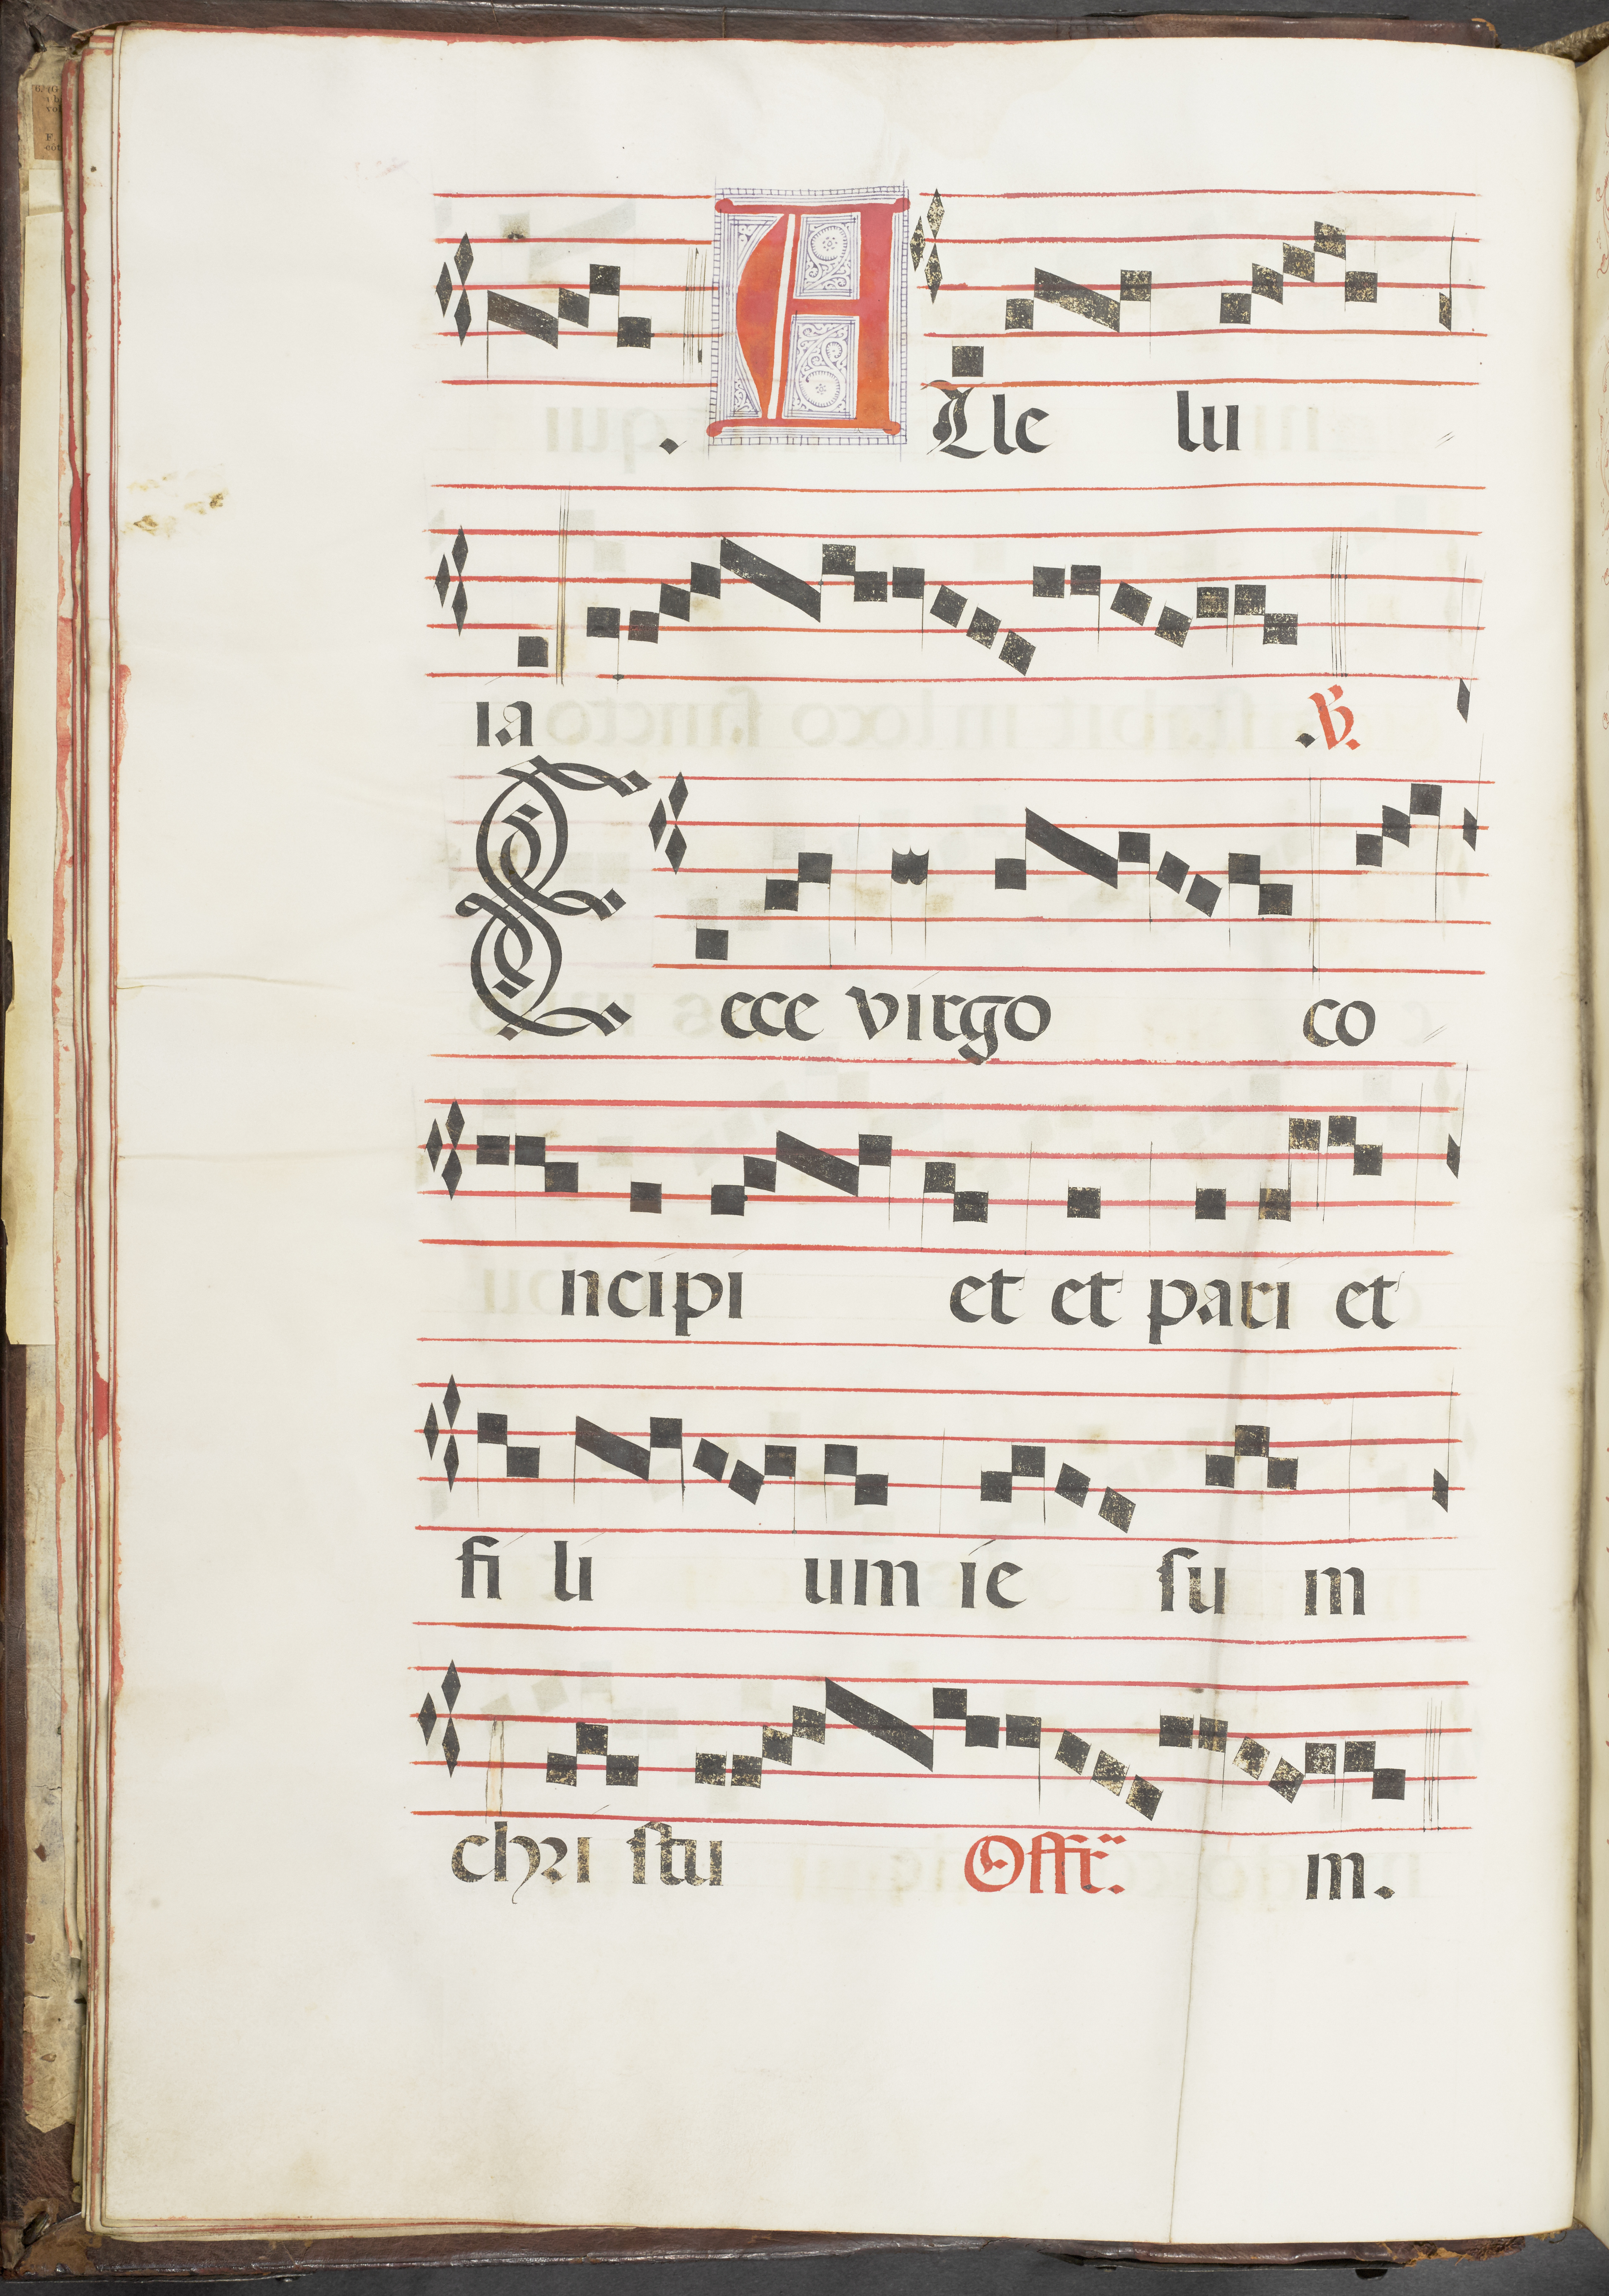 . ALle lu
ia .℣.
Ecce virgo co
ncipi et et pari et
fi li um ie ſu m
chri ſtu Offr̄. m.